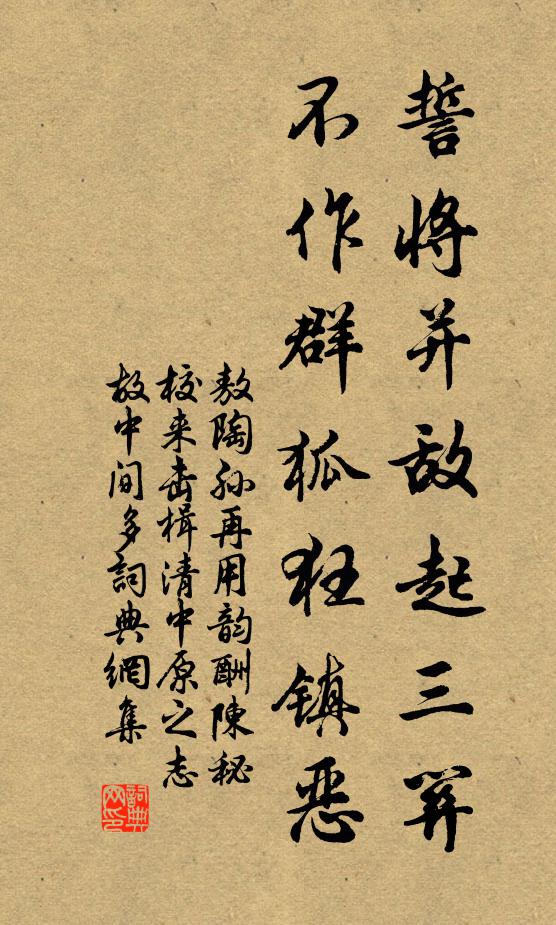 誓将并敌起三罪
不作群狐狂镇恶
敖陶孙再用韵酬陳秘
校来击楫清中原之志
故中间多詞典網集
詞典网印